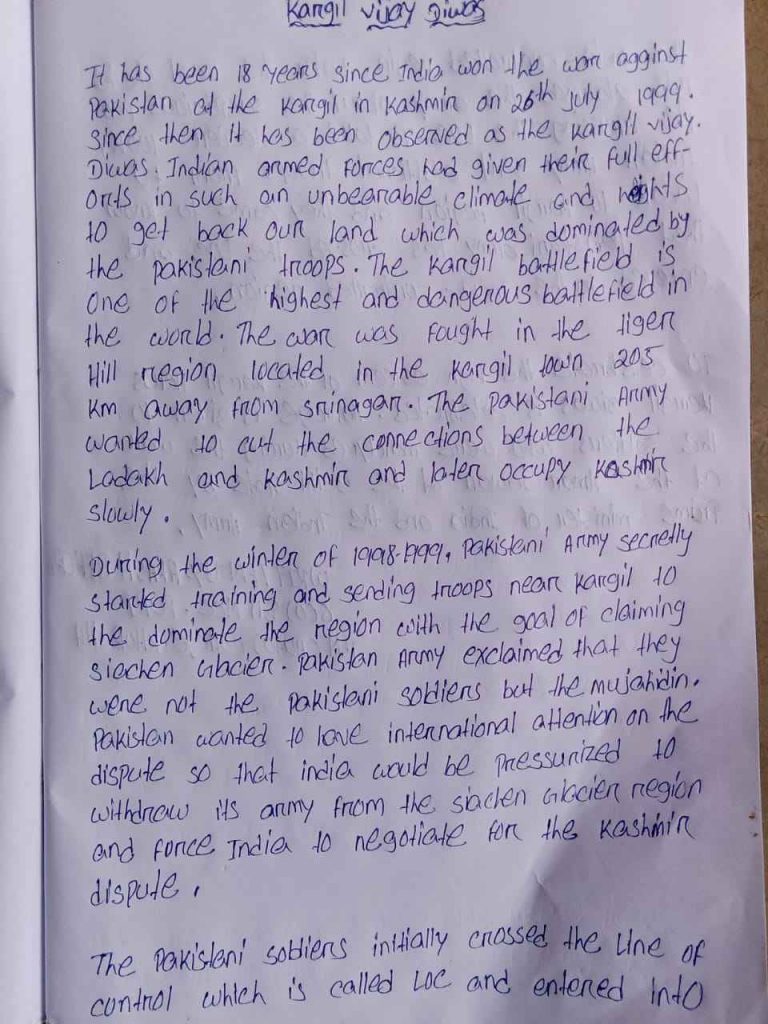 Kargil Vijay Diwas
It has been 18 years since India won the war against
Pakistan at the Kargil in Kashmir on 26th July 1999.
Since then it has been observed as the Kargil vijay.
Diwas. Indian armed forces had given their full eff-
orts in such an unbearable climate and heights
to get back our land which was dominated by
the Pakistani troops. The Kargil battlefield is
One of the highest and dangerous battlefield in
the world. The war was fought in the tiger
Hill region located in the Kargil town 205
Km away from srinagar. The Pakistani Army
wanted to cut the connections between the
Ladakh and Kashmir and later occupy Kashmir
slowly.
During the winter of 1998-1999, Pakistani Army secretly
started training and sending troops near Kargil to
the dominate the region with the goal of claiming
Siachen Glacier. Pakistan Army exclaimed that they
were not the Pakistani soldiers but the mujahidin.
Pakistan wanted to love international attention on the
dispute so that india would be Pressurized to
withdrew its army from the siachen Glacier region
and force India to negotiate for the Kashmir
dispute.
The Pakistani soldiers initially crossed the Line of
control which is called LOC and entered into